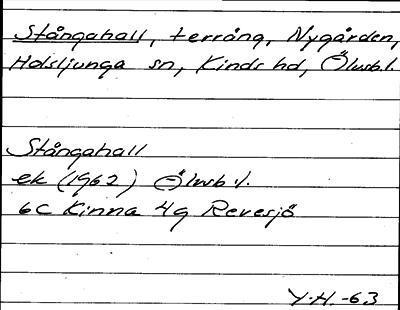 Stångahall, terräng, Nygården,
Holsljunga sn, Kinds hd, Älvsb.l.
Stångahall
ek (1962) Älvsb.l.
6C Kinna 4g Revesjö
Y.H.-63